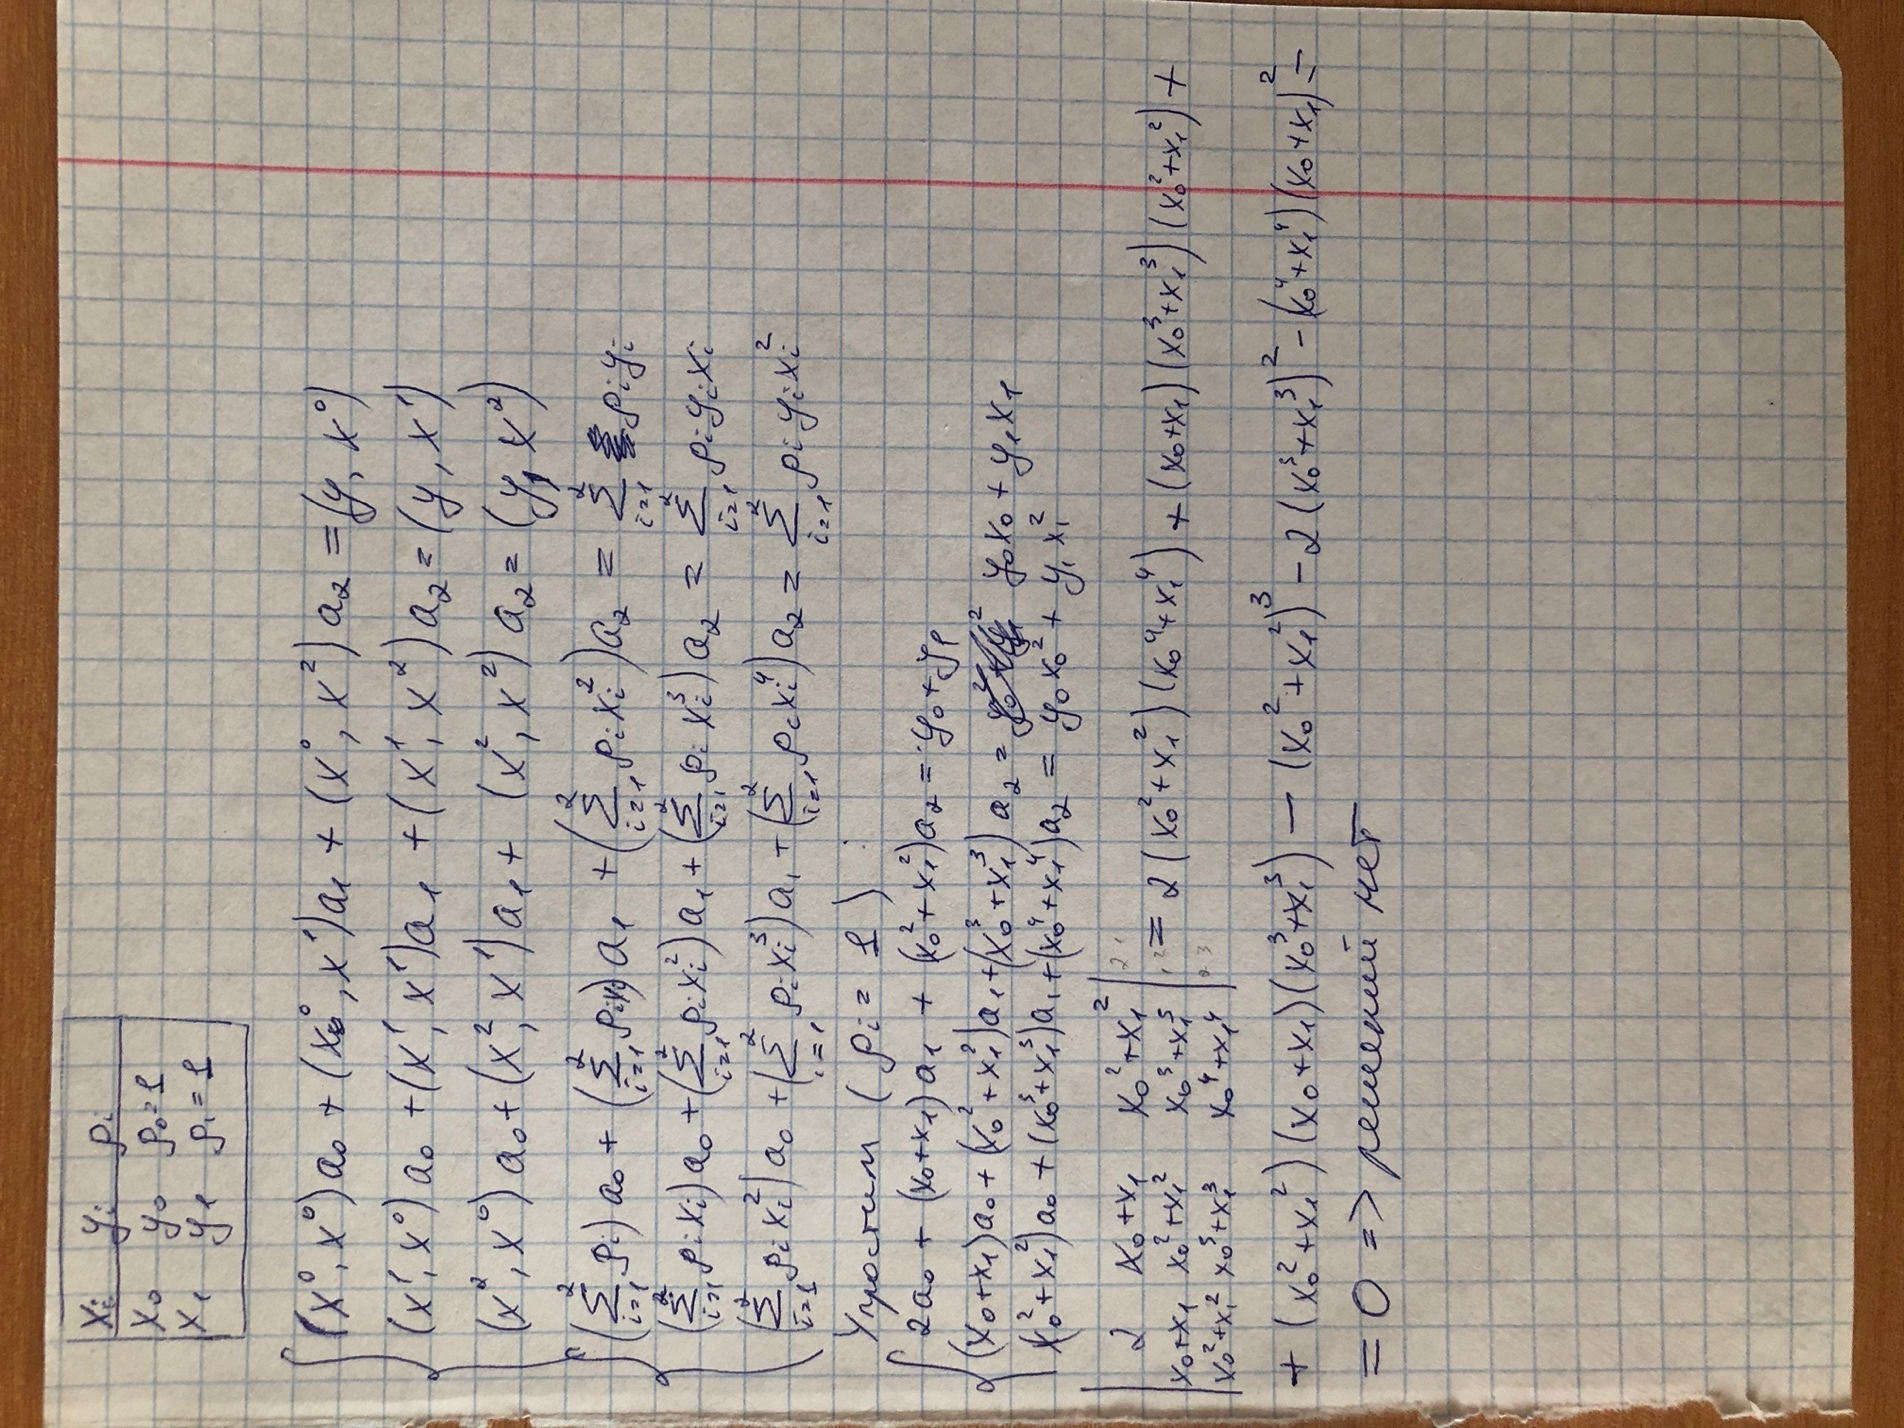 xᵢ yᵢ ρᵢ
x₀ y₀ ρ₀=1
x₁ y₁ ρ₁=1
(x⁰, x⁰)a₀ + (x⁰, x¹)a₁ + (x⁰, x²)a₂ = (y, x⁰)
(x¹, x⁰)a₀ + (x¹, x¹)a₁ + (x¹, x²)a₂ = (y, x¹)
(x², x⁰)a₀ + (x², x¹)a₁ + (x², x²)a₂ = (y, x²)
(∑ᵢ₌₁² ρᵢ)a₀ + (∑ᵢ₌₁² ρᵢxᵢ)a₁ + (∑ᵢ₌₁² ρᵢxᵢ²)a₂ = ∑ᵢ₌₁² ρᵢyᵢ
(∑ᵢ₌₁² ρᵢxᵢ)a₀ + (∑ᵢ₌₁² ρᵢxᵢ²)a₁ + (∑ᵢ₌₁² ρᵢxᵢ³)a₂ = ∑ᵢ₌₁² ρᵢyᵢxᵢ
(∑ᵢ₌₁² ρᵢxᵢ²)a₀ + (∑ᵢ₌₁² ρᵢxᵢ³)a₁ + (∑ᵢ₌₁² ρᵢxᵢ⁴)a₂ = ∑ᵢ₌₁² ρᵢyᵢxᵢ²
Упростим (ρᵢ = 1) :
2a₀ + (x₀+x₁)a₁ + (x₀²+x₁²)a₂ = y₀+y₁
(x₀+x₁)a₀ + (x₀²+x₁²)a₁ + (x₀³+x₁³)a₂ = y₀x₀ + y₁x₁
(x₀²+x₁²)a₀ + (x₀³+x₁³)a₁ + (x₀⁴+x₁⁴)a₂ = y₀x₀² + y₁x₁²
| 2 x₀+x₁ x₀²+x₁² |
| x₀+x₁ x₀²+x₁² x₀³+x₁³ | = 2(x₀²+x₁²)(x₀⁴+x₁⁴) + (x₀+x₁)(x₀³+x₁³)(x₀²+x₁²) +
| x₀²+x₁² x₀³+x₁³ x₀⁴+x₁⁴ |
+ (x₀²+x₁²)(x₀+x₁)(x₀³+x₁³) − (x₀²+x₁²)³ − 2(x₀³+x₁³)² − (x₀⁴+x₁⁴)(x₀+x₁)² =
= 0 => решений нет